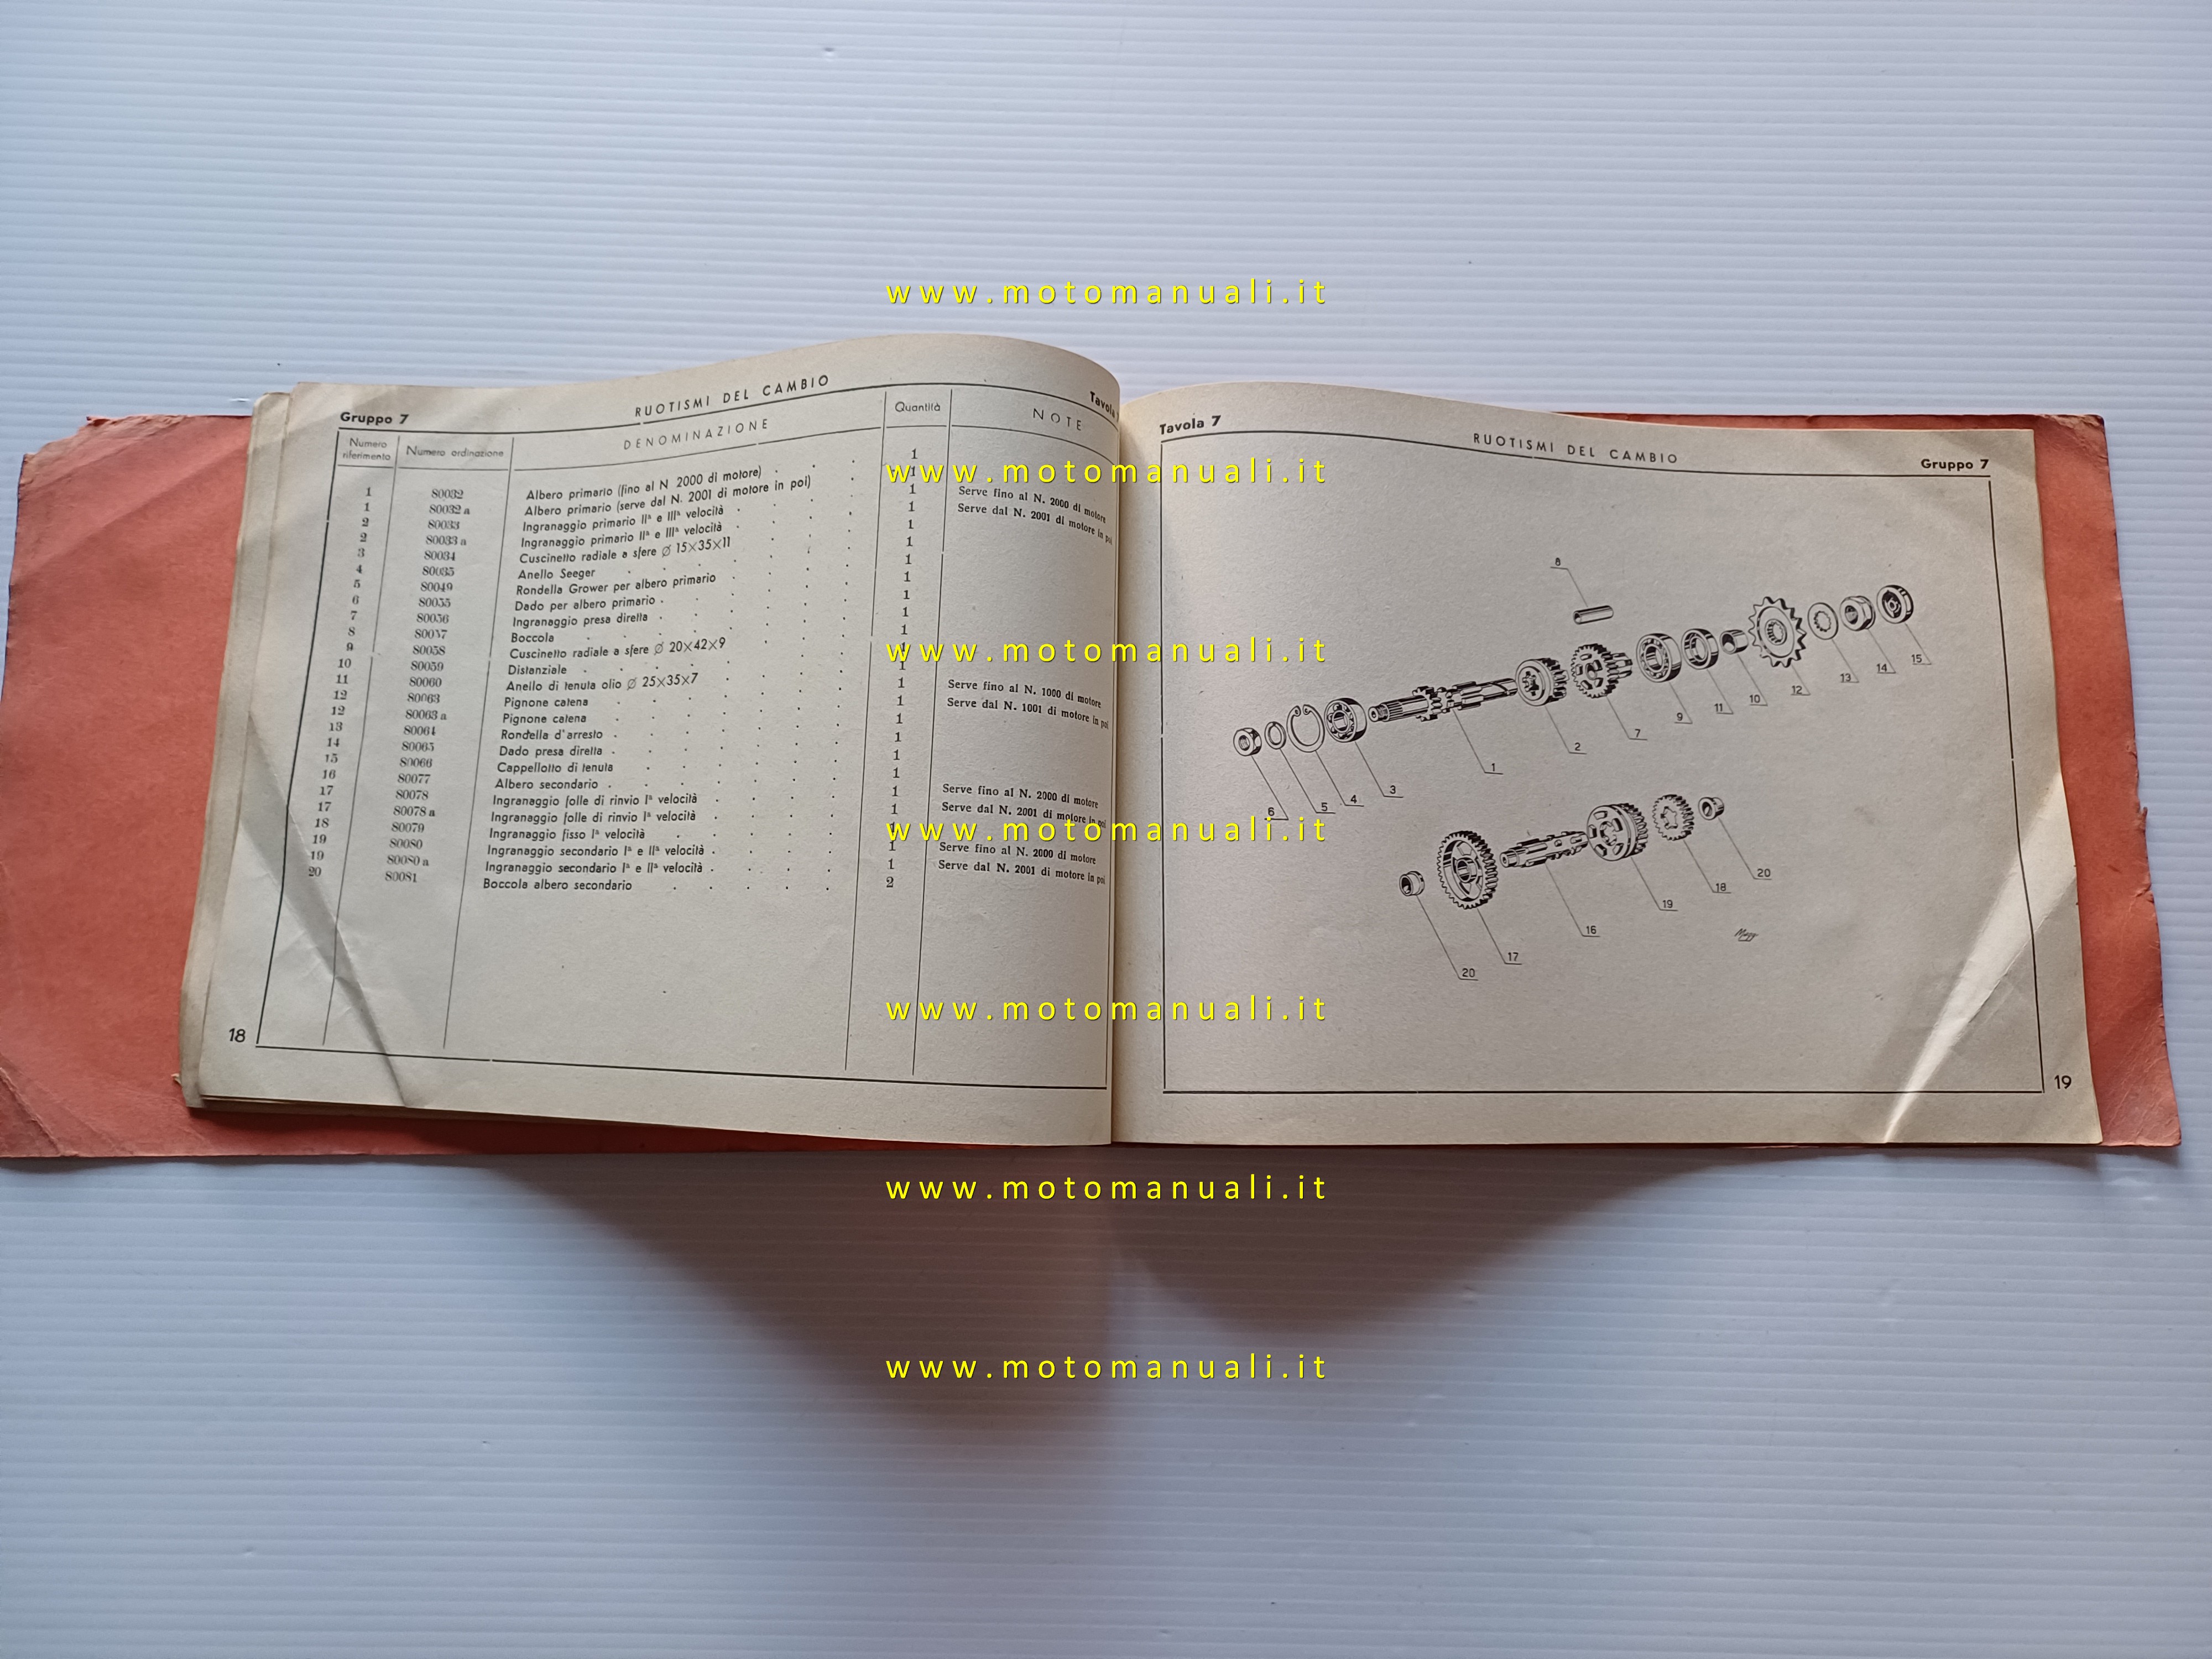 www.motomanuali.it
Gruppo 7 RUOTISMI DEL CAMBIO Tavola
Numero riferimento Numero ordinazione DENOMINAZIONE Quantità NOTE
1 80032 Albero primario (fino al N 2000 di motore) 1
1 80032 a Albero primario (serve dal N. 2001 di motore in poi) 1
2 80033 Ingranaggio primario IIª e IIIª velocità 1 Serve fino al N. 2000 di motore
2 80033 a Ingranaggio primario IIª e IIIª velocità 1 Serve dal N. 2001 di motore in poi
3 80034 Cuscinetto radiale a sfere Ø 15×35×11 1
4 80035 Anello Seeger 1
5 80049 Rondella Grower per albero primario 1
6 80055 Dado per albero primario 1
7 80056 Ingranaggio presa diretta 1
8 80057 Boccola 1
9 80058 Cuscinetto radiale a sfere Ø 20×42×9 1
10 80059 Distanziale 1
11 80060 Anello di tenuta olio Ø 25×35×7 1
12 80063 Pignone catena 1 Serve fino al N. 1000 di motore
12 80063 a Pignone catena 1 Serve dal N. 1001 di motore in poi
13 80064 Rondella d'arresto 1
14 80065 Dado presa diretta 1
15 80066 Cappellotto di tenuta 1
16 80077 Albero secondario 1
17 80078 Ingranaggio folle di rinvio Iª velocità 1 Serve fino al N. 2000 di motore
17 80078 a Ingranaggio folle di rinvio Iª velocità 1 Serve dal N. 2001 di motore in poi
18 80079 Ingranaggio fisso Iª velocità 1
19 80080 Ingranaggio secondario Iª e IIª velocità 1 Serve fino al N. 2000 di motore
19 80080 a Ingranaggio secondario Iª e IIª velocità 1 Serve dal N. 2001 di motore in poi
20 80081 Boccola albero secondario 2
18
Tavola 7 RUOTISMI DEL CAMBIO Gruppo 7
8
15
14
13
12
10
11
9
7
2
1
3
4
5
6
20
18
19
16
17
20
19
www.motomanuali.it
www.motomanuali.it
www.motomanuali.it
www.motomanuali.it
www.motomanuali.it
www.motomanuali.it